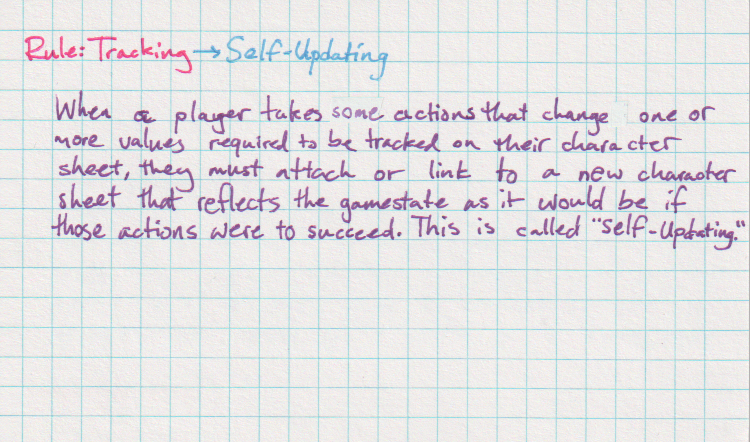 Rule: Tracking → Self-Updating
When a player takes some actions that change one or
more values required to be tracked on their character
sheet, they must attach or link to a new character
sheet that reflects the gamestate as it would be if
those actions were to succeed. This is called "Self-Updating."